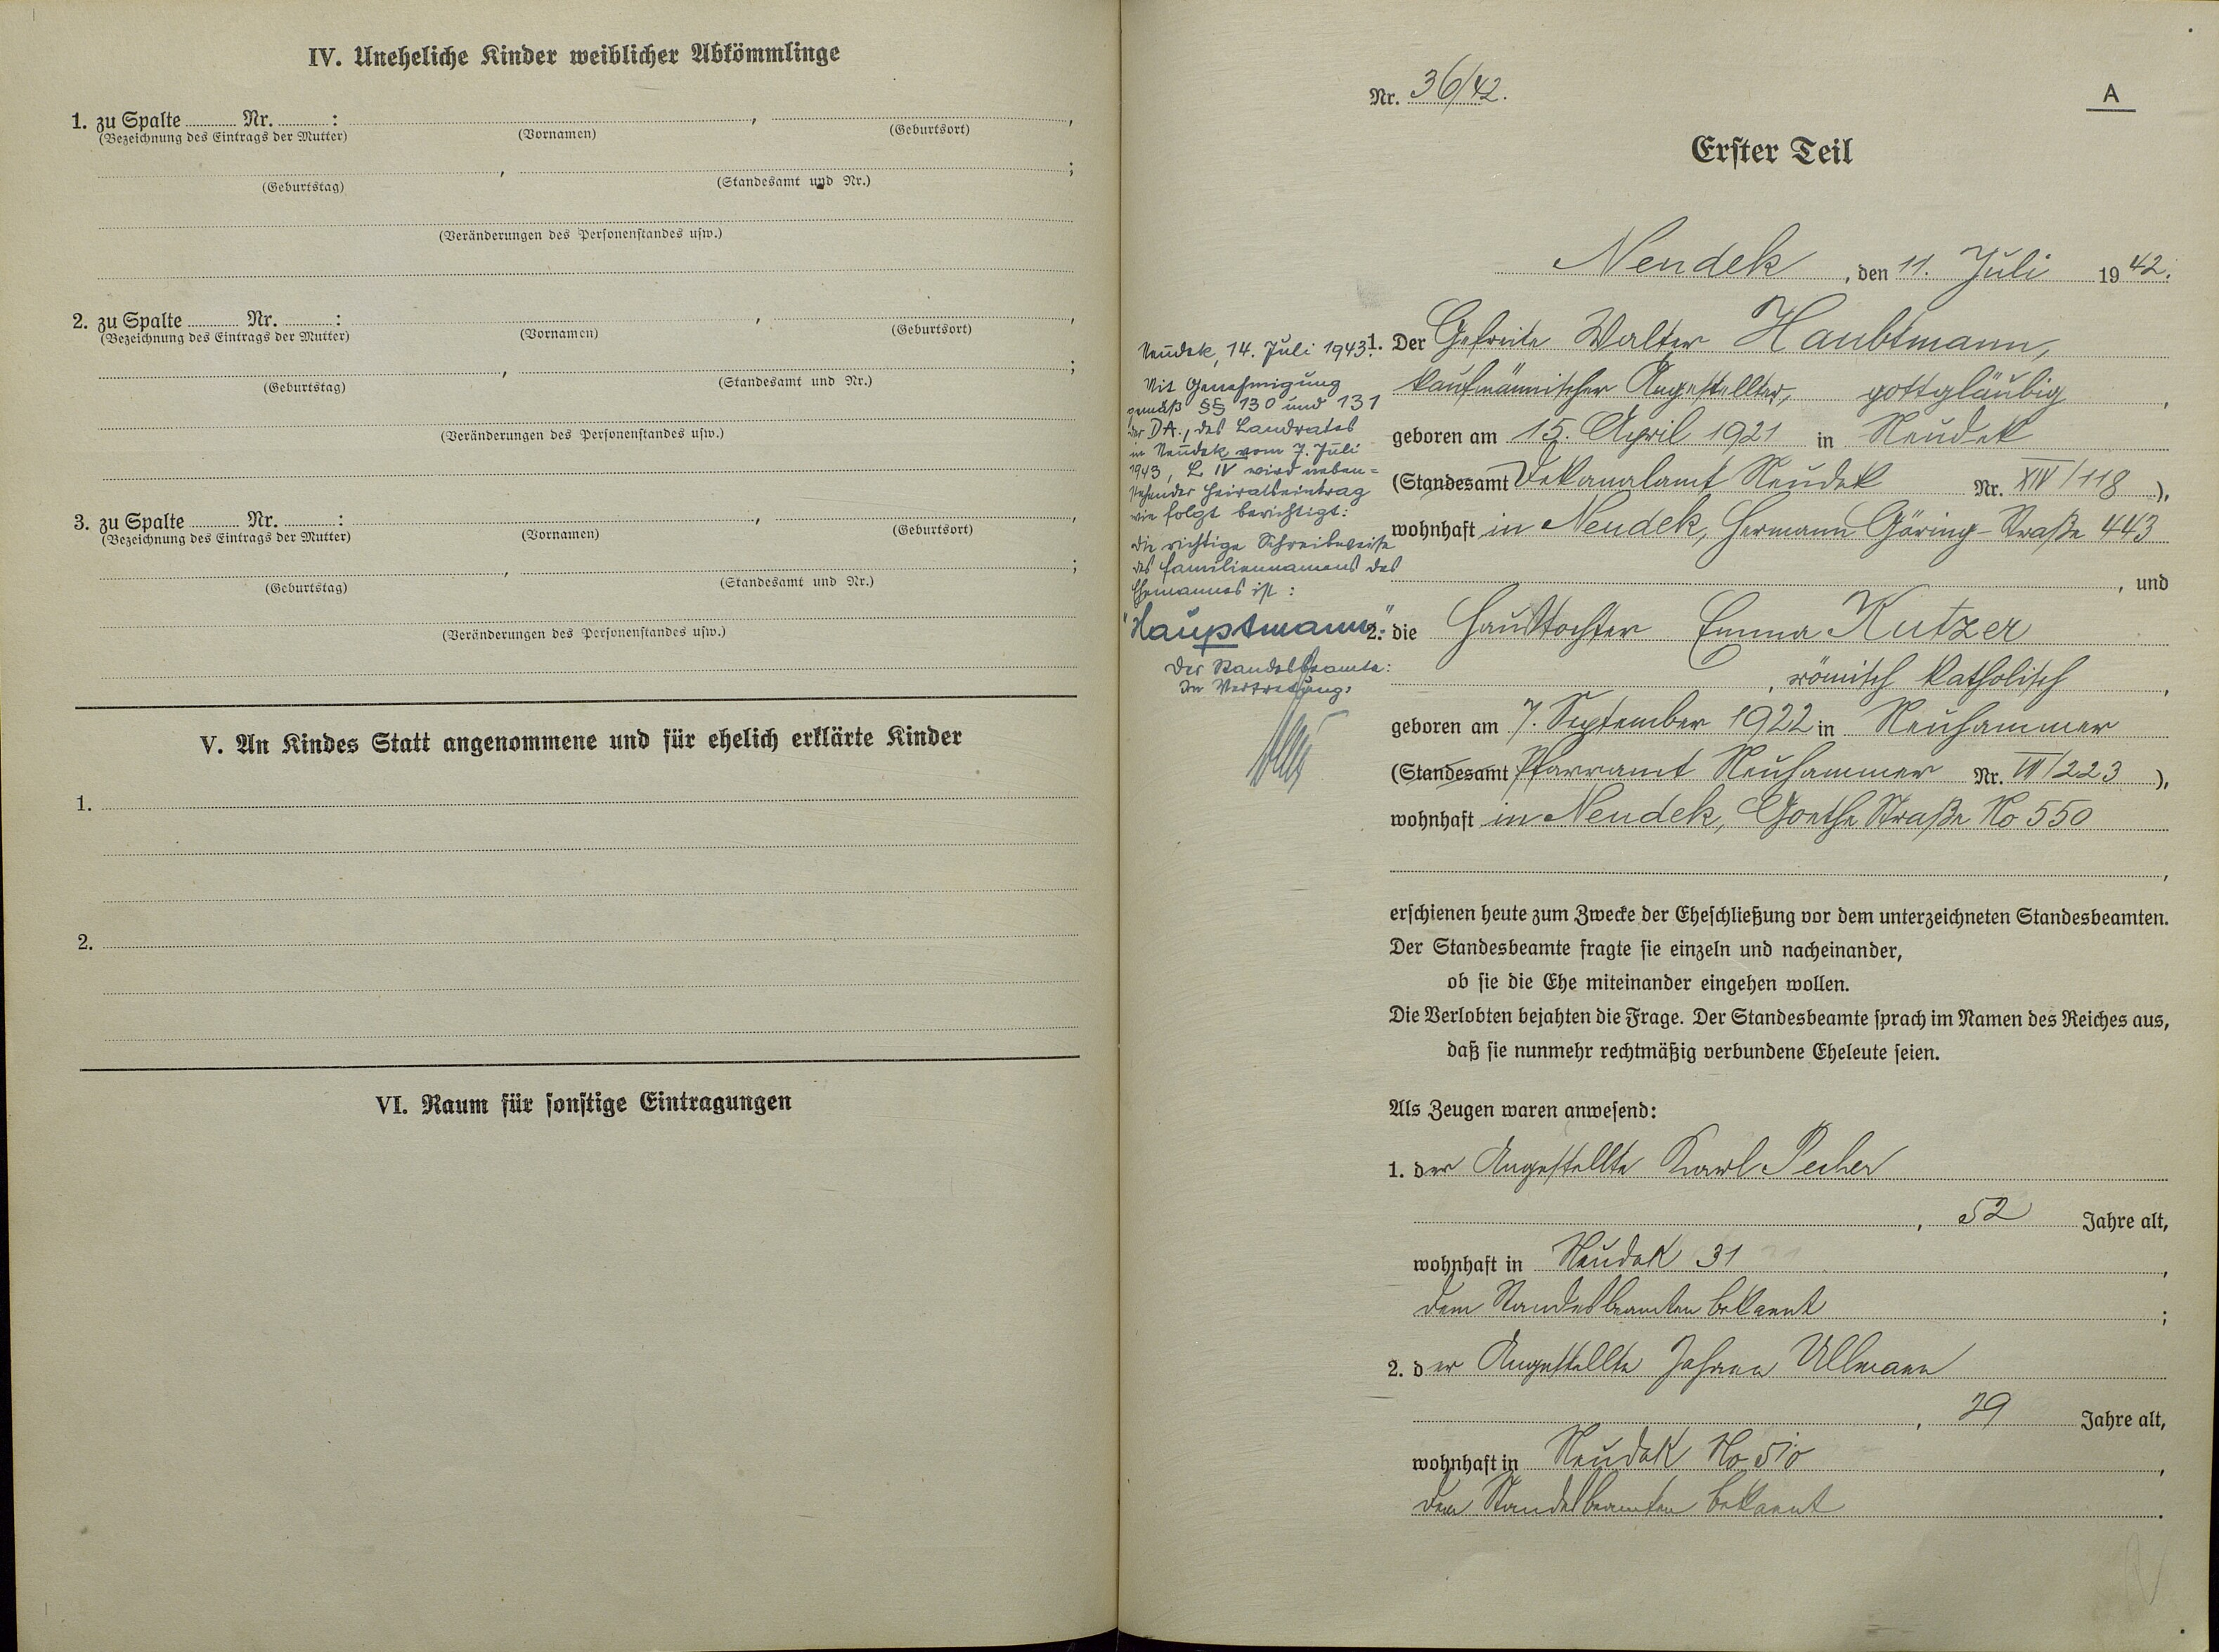 IV. Uneheliche Kinder weiblicher Abkömmlinge
1. zu Spalte ........ Nr. ........ :
(Bezeichnung des Eintrags der Mutter) (Vornamen) (Geburtsort)
(Geburtstag) (Standesamt und Nr.)
(Veränderungen des Personenstandes usw.)
2. zu Spalte ........ Nr. ........ :
(Bezeichnung des Eintrags der Mutter) (Vornamen) (Geburtsort)
(Geburtstag) (Standesamt und Nr.)
(Veränderungen des Personenstandes usw.)
3. zu Spalte ........ Nr. ........ :
(Bezeichnung des Eintrags der Mutter) (Vornamen) (Geburtsort)
(Geburtstag) (Standesamt und Nr.)
(Veränderungen des Personenstandes usw.)
V. An Kindes Statt angenommene und für ehelich erklärte Kinder
1.
2.
VI. Raum für sonstige Eintragungen
Nr. 36/42.
A
Erster Teil
Neudek, den 11. Juli 1942.
1. Der Gefreite Walter Haubtmann,
kaufmännischer Angestellter, gottgläubig,
geboren am 15. April 1921 in Neudek
(Standesamt Dekanalamt Neudek Nr. XIV/118),
wohnhaft in Neudek, Hermann Göring-Straße 443
, und
2. die Haustochter Emma Kutzer
, römisch katholisch,
geboren am 7. September 1922 in Neuhammer
(Standesamt Pfarramt Neuhammer Nr. IV/223),
wohnhaft in Neudek, Goethe Straße No 550
,
erschienen heute zum Zwecke der Eheschließung vor dem unterzeichneten Standesbeamten.
Der Standesbeamte fragte sie einzeln und nacheinander,
ob sie die Ehe miteinander eingehen wollen.
Die Verlobten bejahten die Frage. Der Standesbeamte sprach im Namen des Reiches aus,
daß sie nunmehr rechtmäßig verbundene Eheleute seien.
Als Zeugen waren anwesend:
1. der Angestellte Karl Pecher
, 52 Jahre alt,
wohnhaft in Neudek 31,
dem Standesbeamten bekannt;
2. der Angestellte Johann Ullmann
, 39 Jahre alt,
wohnhaft in Neudek No 510,
dem Standesbeamten bekannt.
Neudek, 14. Juli 1943.
Mit Genehmigung
gemäß §§ 130 und 131
der DA., des Landrates
in Neudek vom 7. Juli
1943, L IV wird neben=
stehender Heiratseintrag
wie folgt berichtigt:
die richtige Schreibweise
des Familiennamens des
Ehemannes ist:
"Hauptmann".
Der Standesbeamte:
In Vertretung: